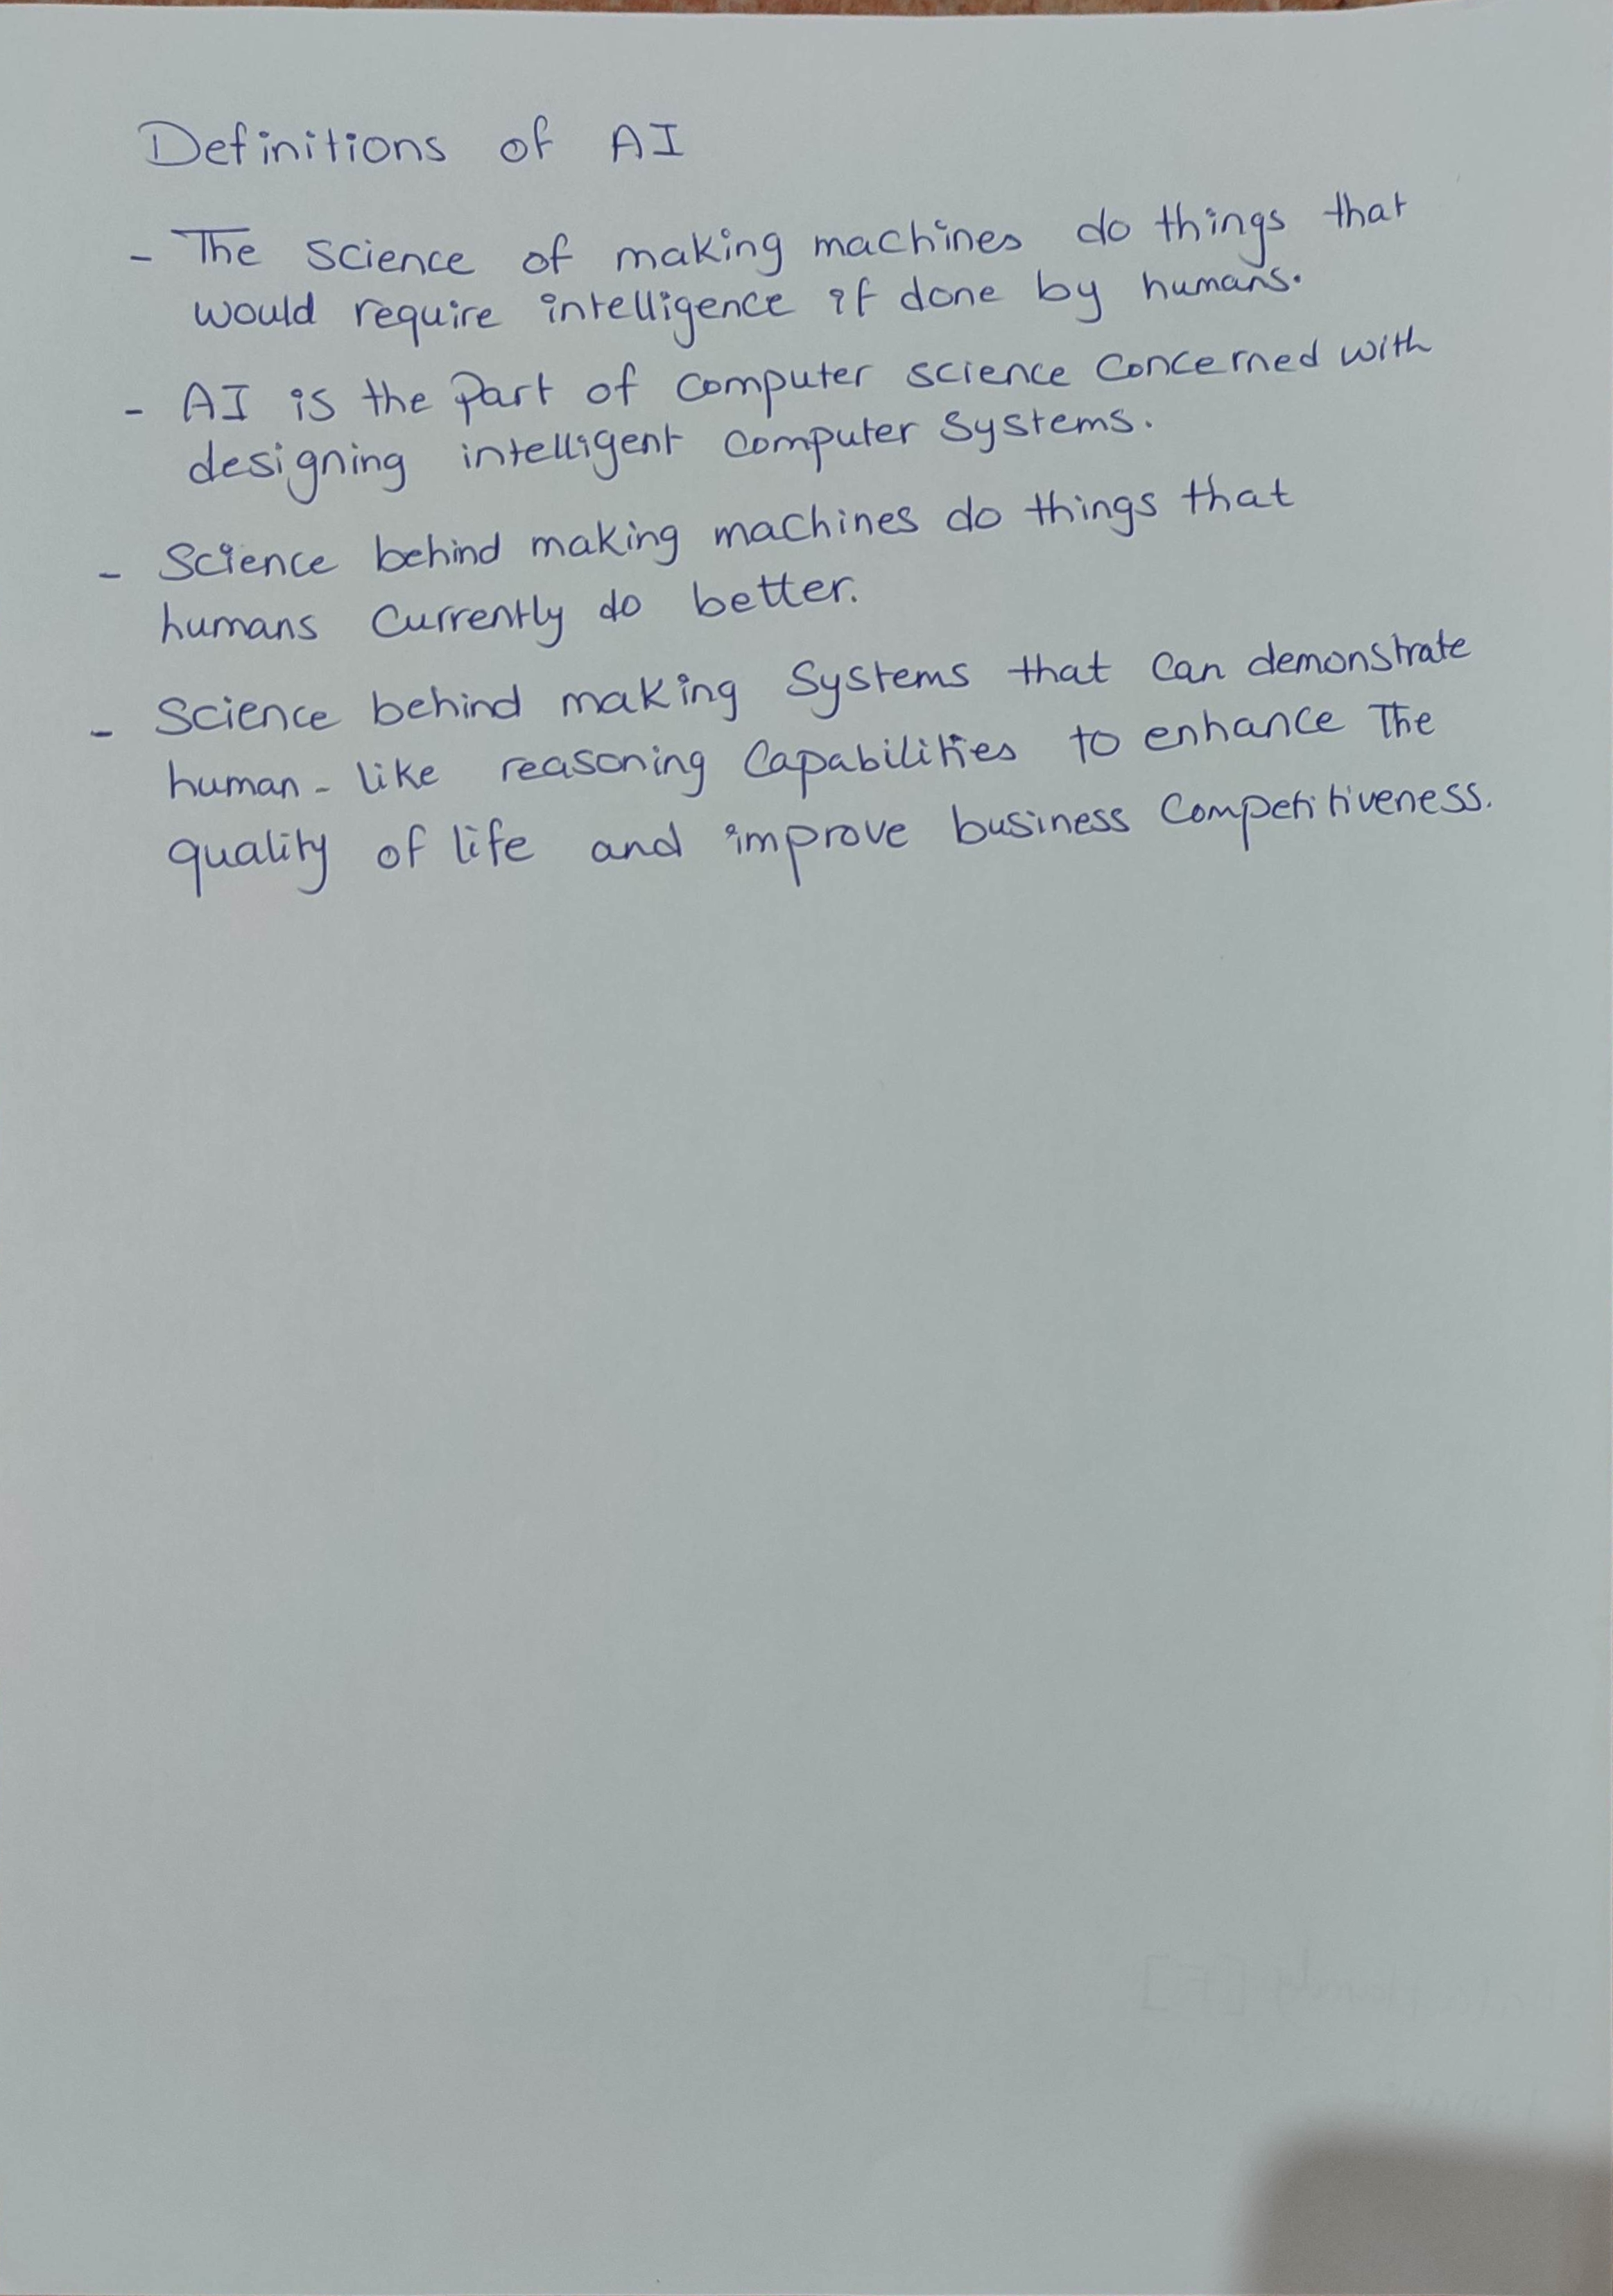 Definitions of AI
- The science of making machines do things that
would require intelligence if done by humans.
- AI is the Part of computer science concerned with
designing intelligent computer systems.
- Science behind making machines do things that
humans currently do better.
- Science behind making Systems that can demonstrate
human-like reasoning capabilities to enhance The
quality of life and improve business competitiveness.